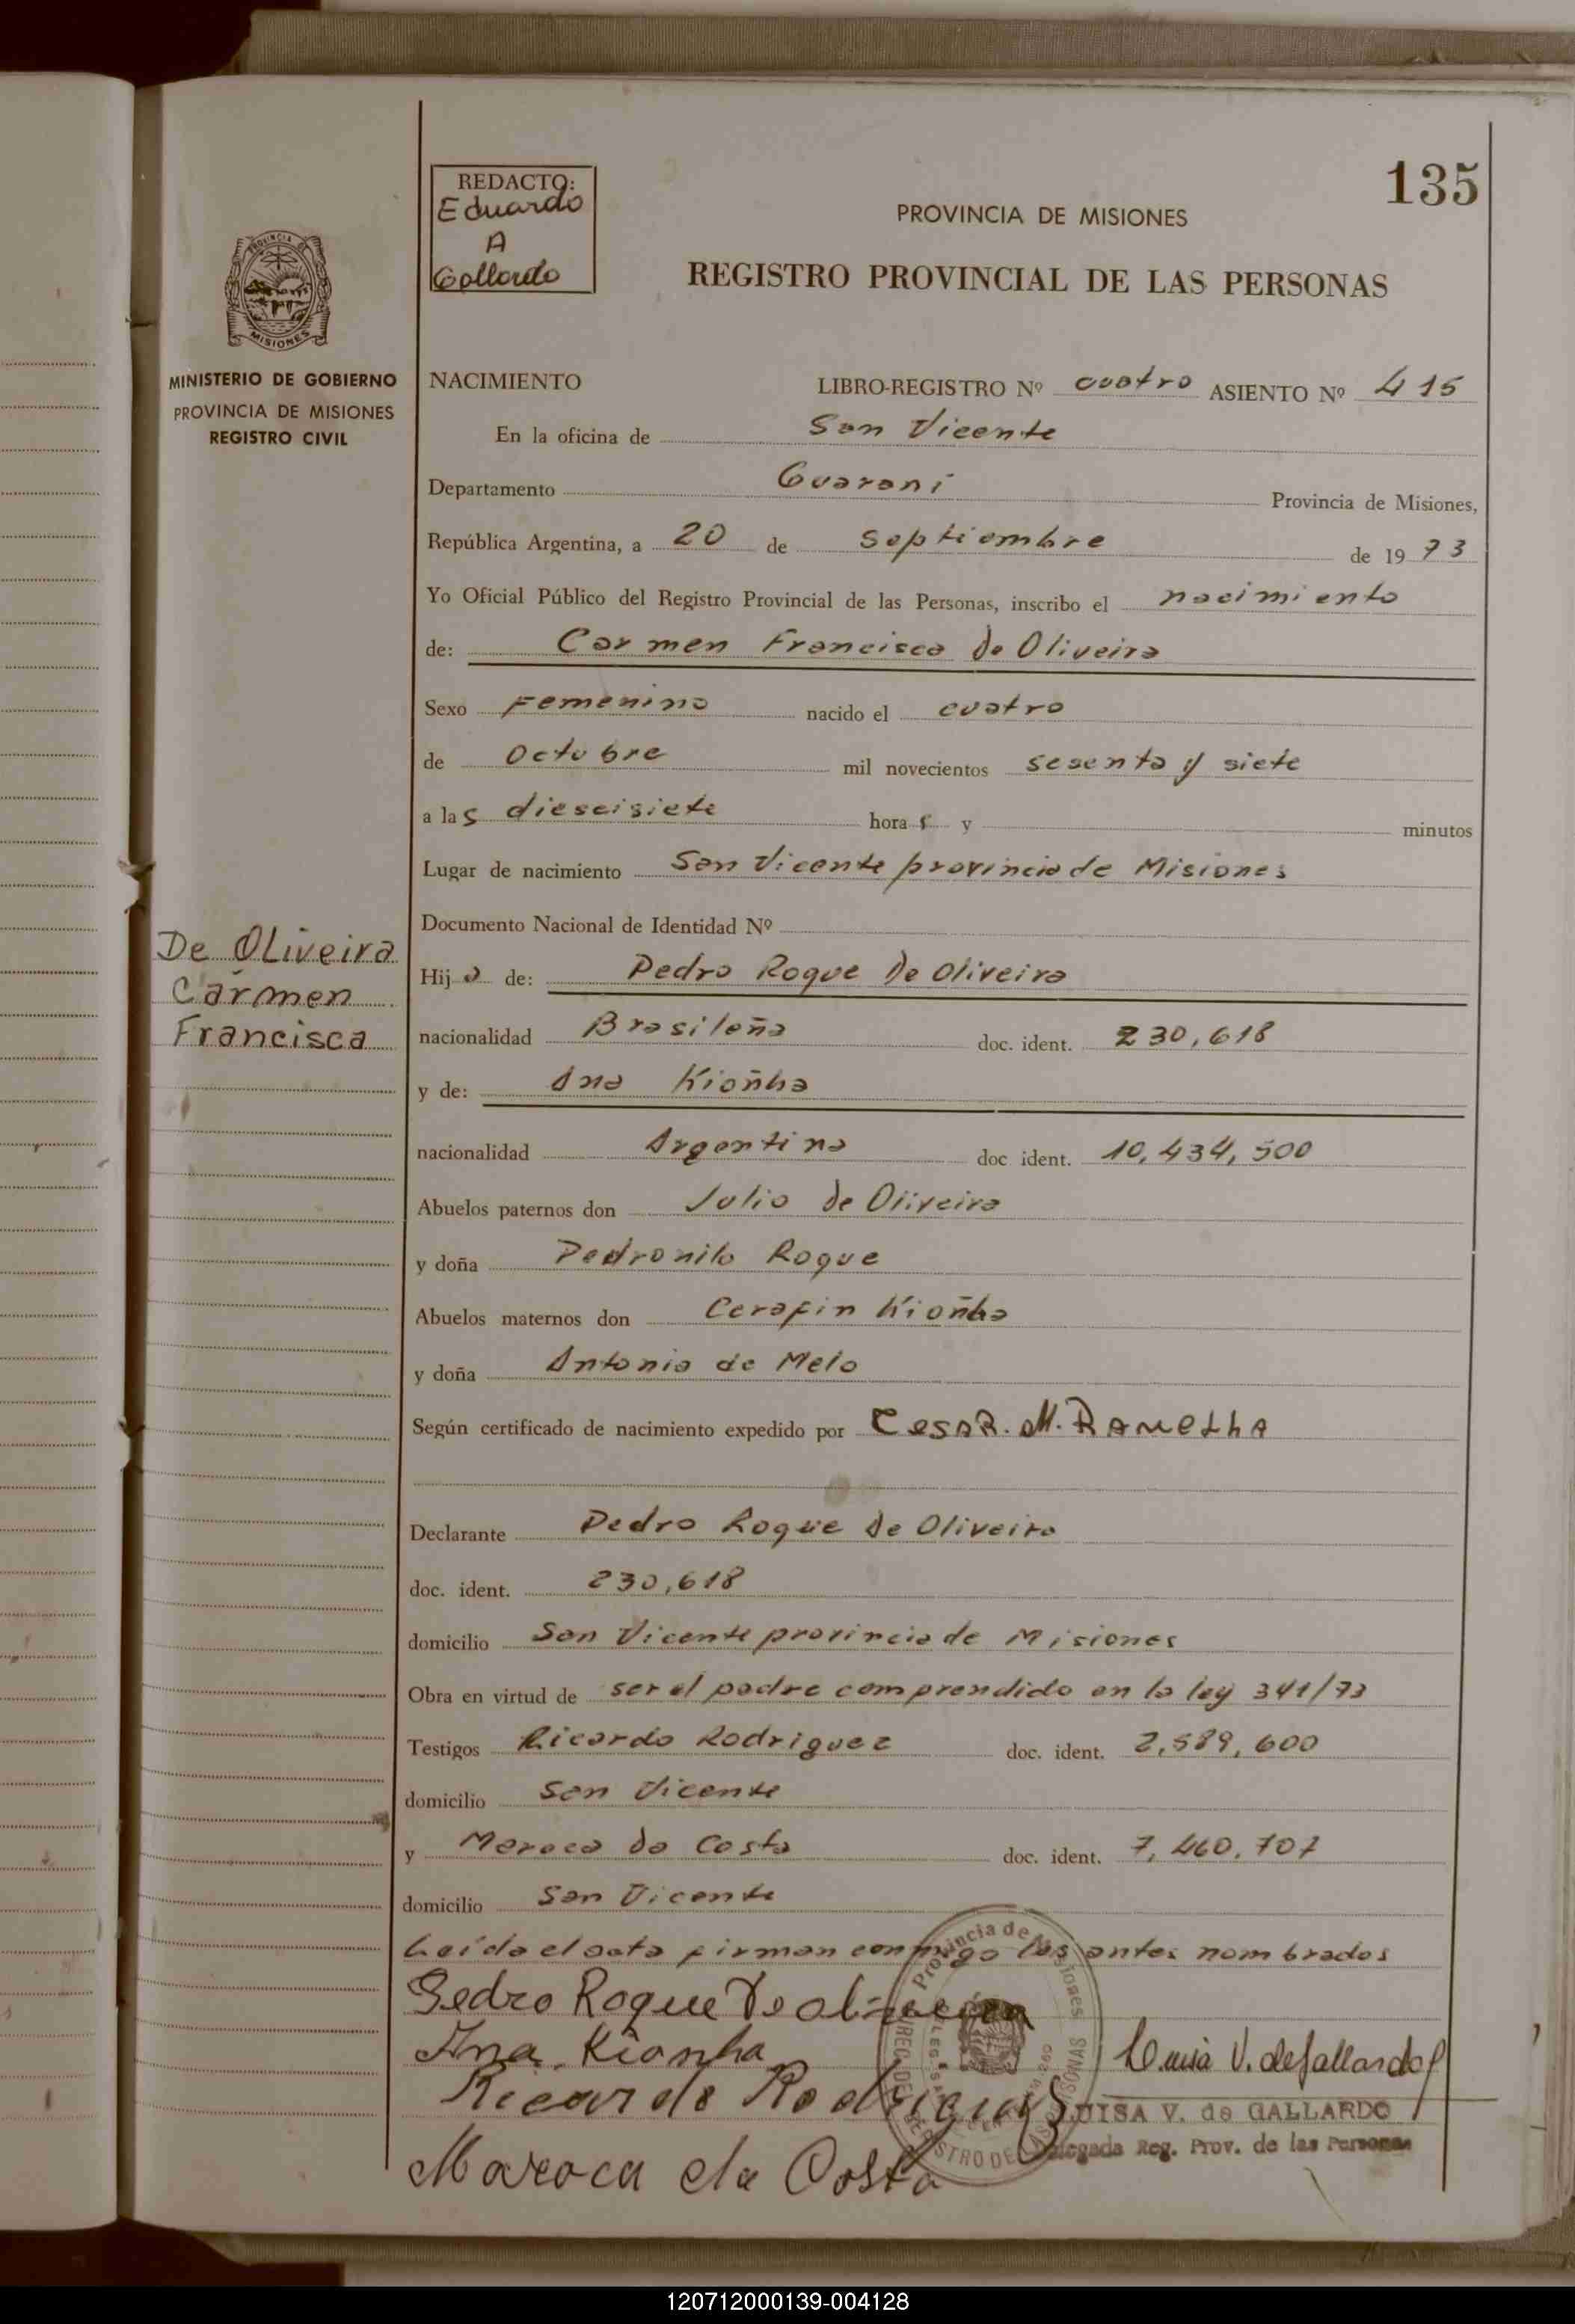 135
REDACTO:
Eduardo
A
Gallardo
PROVINCIA DE MISIONES
REGISTRO PROVINCIAL DE LAS PERSONAS
PROVINCIA DE
MISIONES
MINISTERIO DE GOBIERNO
PROVINCIA DE MISIONES
REGISTRO CIVIL
NACIMIENTO LIBRO-REGISTRO Nº cuatro ASIENTO Nº 415
En la oficina de San Vicente
Departamento Guaraní Provincia de Misiones,
República Argentina, a 20 de Septiembre de 1973
Yo Oficial Público del Registro Provincial de las Personas, inscribo el nacimiento
de: Carmen Francisca de Oliveira
Sexo Femenino nacido el cuatro
de Octubre mil novecientos sesenta y siete
a las dieseisiete horas y minutos
Lugar de nacimiento San Vicente provincia de Misiones
Documento Nacional de Identidad Nº
De Oliveira
Carmen
Francisca
Hija de: Pedro Roque De Oliveira
nacionalidad Brasileña doc. ident. 230,618
y de: Ana Kioñha
nacionalidad Argentina doc ident. 10,434,500
Abuelos paternos don Julio de Oliveira
y doña Pedronila Roque
Abuelos maternos don Cerafin Kioñha
y doña Antonia de Melo
Según certificado de nacimiento expedido por Cesar. M.
Declarante Pedro Roque de Oliveira
doc. ident. 230,618
domicilio San Vicente provincia de Misiones
Obra en virtud de ser el padre comprendido en la ley 341/73
Testigos Ricardo Rodriguez doc. ident. 2,589,600
domicilio San Vicente
y Maroca da Costa doc. ident. 7,460,707
domicilio San Vicente
Leída el acta firman conmigo los antes nombrados
Pedro Roque De oliveira
Ana Kionha
Ricardo Rodriguez
Maroca da Costa
Luisa V. de Gallardo
LUISA V. de GALLARDO
Delegada Reg. Prov. de las Personas
120712000139-004128